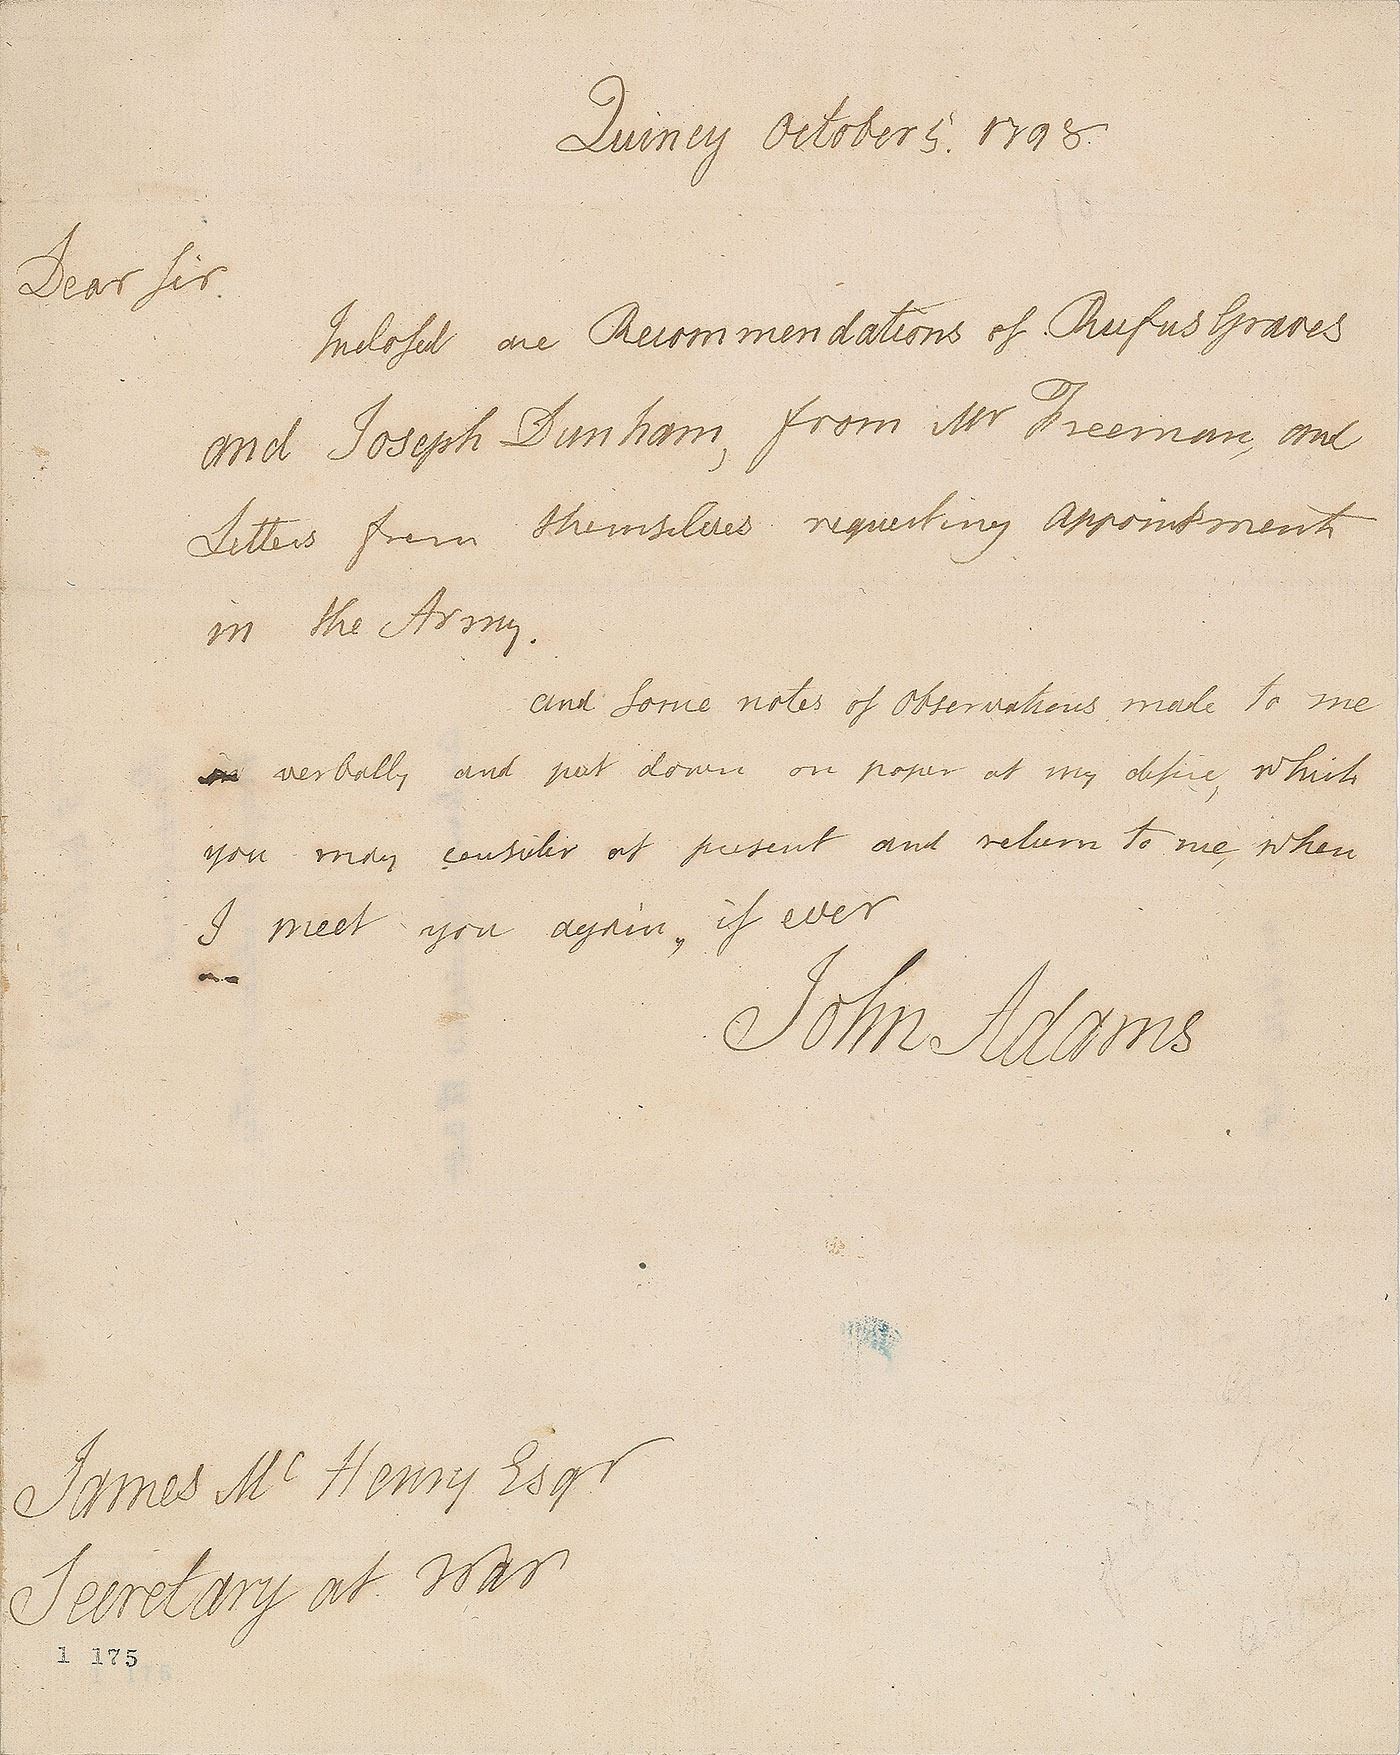 Quincy October 5. 1798.
Dear Sir.
Inclosed are Recommendations of Rufus Graves
and Joseph Dunham, from Mr Freeman, and
Letters from themselves requesting appointment
in the Army.
and some notes of observations made to me
verbally and put down on paper at my desire, which
you may consider at present and return to me, when
I meet you again, if ever
John Adams
James Mc Henry Esqr
Secretary at War
1 175